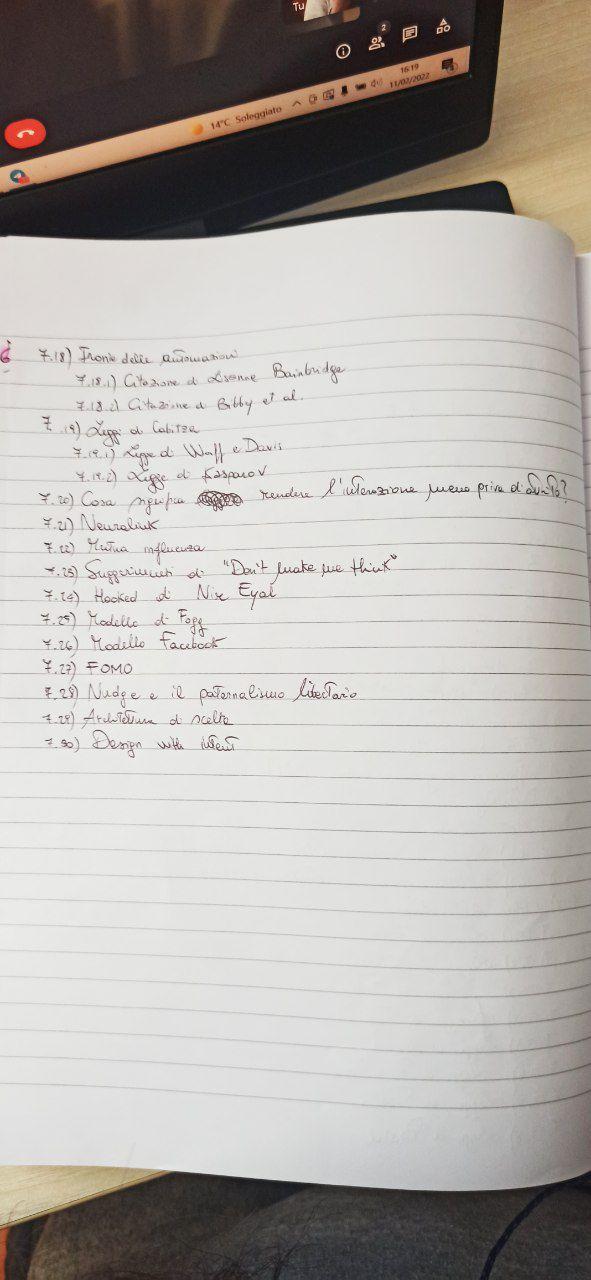 Tu
2
16:19
11/02/2022
14°C Soleggiato
7.18) Ironie delle automazioni
7.18.1) Citazione di Lisanne Bainbridge
7.18.2) Citazione di Bibby et al.
7.19) Leggi di Cabitza
7.19.1) Legge di Woff e Davis
7.19.2) Legge di Kasparov
7.20) Cosa significa rendere l'interazione meno priva di
7.21) Neuralink
7.22) Mutua influenza
7.23) Suggerimenti di "Don't make me think"
7.24) Hooked di Nir Eyal
7.25) Modello di Fogg
7.26) Modello Facebook
7.27) FOMO
7.28) Nudge e il paternalismo libertario
7.29) Architettura di scelta
7.30) Design with intent